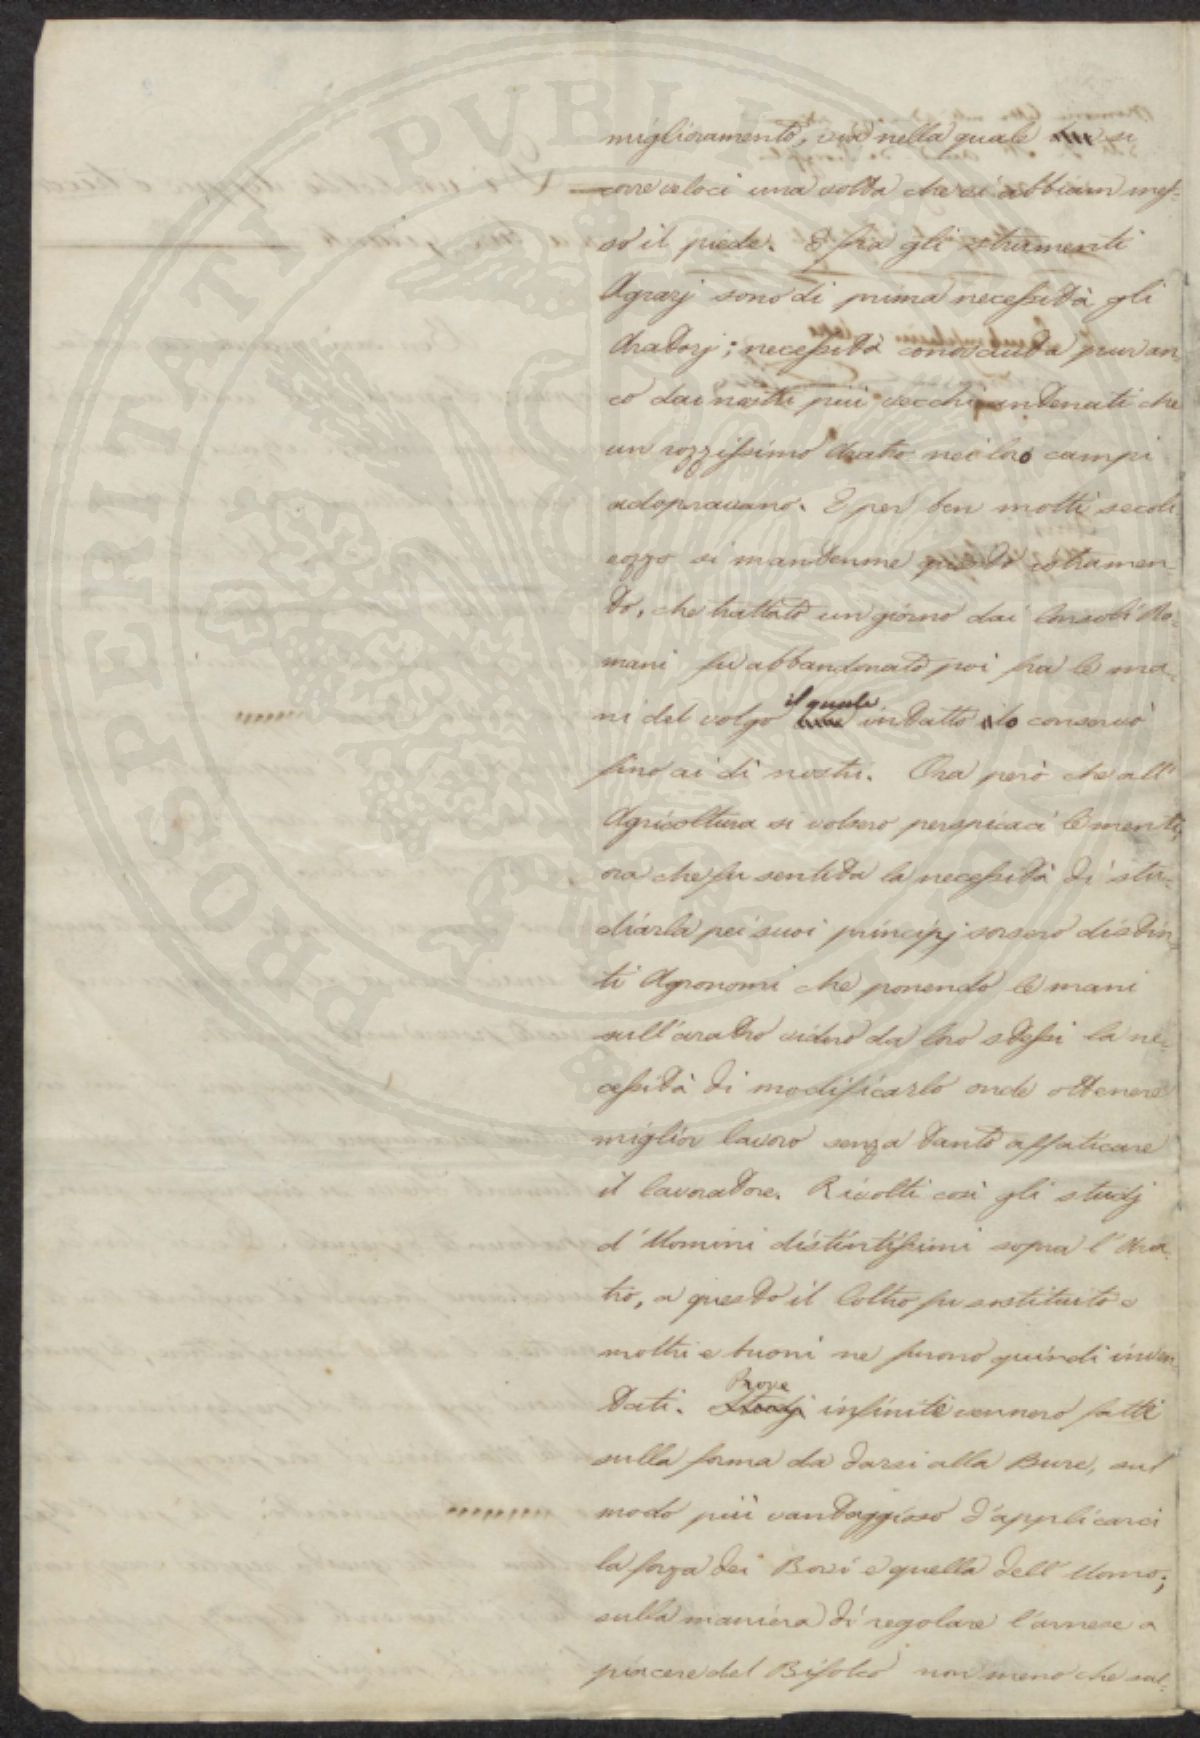 miglioramento, via nella quale si
corre veloci una volta che ci abbiam mes-
so il piede. E fra gli strumenti
Agrarj sono di prima necessità gli
Aratorj; necessità conosciuta pur an-
co dai nostri più vecchi antenati che
un rozzissimo Aratro nei loro campi
adopravano. E per ben molti secoli
rozzo si mantenne questo istrumen-
to, che trattato un giorno dai Consoli Ro-
mani fu abbandonato poi fra le ma-
ni del volgo il quale intatto lo conservò
fino ai dì nostri. Ora però che all'
Agricoltura si volsero perspicaci le menti,
ora che fu sentita la necessità di stu-
diarla pei suoi principj sorsero distin-
ti Agronomi che ponendo le mani
sull'aratro videro da loro stessi la ne-
cessità di modificarlo onde ottenere
miglior lavoro senza tanto affaticare
il lavoratore. Rivolti così gli studj
d'Uomini distintissimi sopra l'Ara-
tro, a questo il Coltro fu sostituito e
moltri e buoni ne furono quindi inven-
tati. Prove Studj infinite vennero fatte
sulla forma da darsi alla Bure, sul
modo più vantaggioso d'applicarci
la forza dei Bovi e quella dell'Uomo;
sulla maniera di regolare l'arnese a
piacere del Bifolco non meno che sul-
PROSPERITATI PUBLICAE